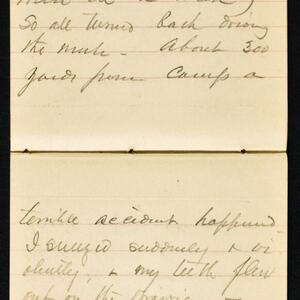 So all turned back down
the mule. About 300
yards from camp a
terrible accident happened
I sneezed suddenly & vi-
olently, & my teeth flew
out on the prairie